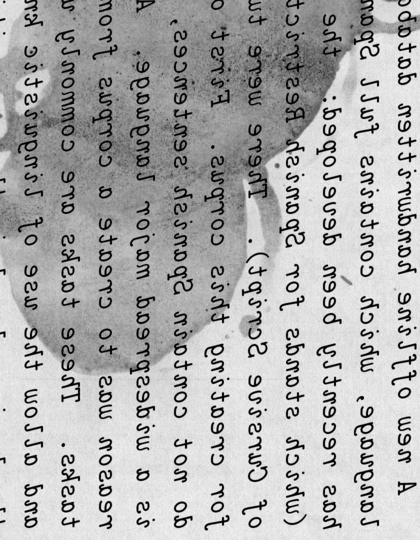 A new offline handwritten databa
language, which contains full Span
has recently been developed: the
(which stands for Spanish Restrict
of Cursive Script). There were tw
for creating this corpus. First o
do not contain Spanish sentences,
is a widespread major language. A
reason was to create a corpus from
tasks. These tasks are commonly
and allow the use of linguistic kn